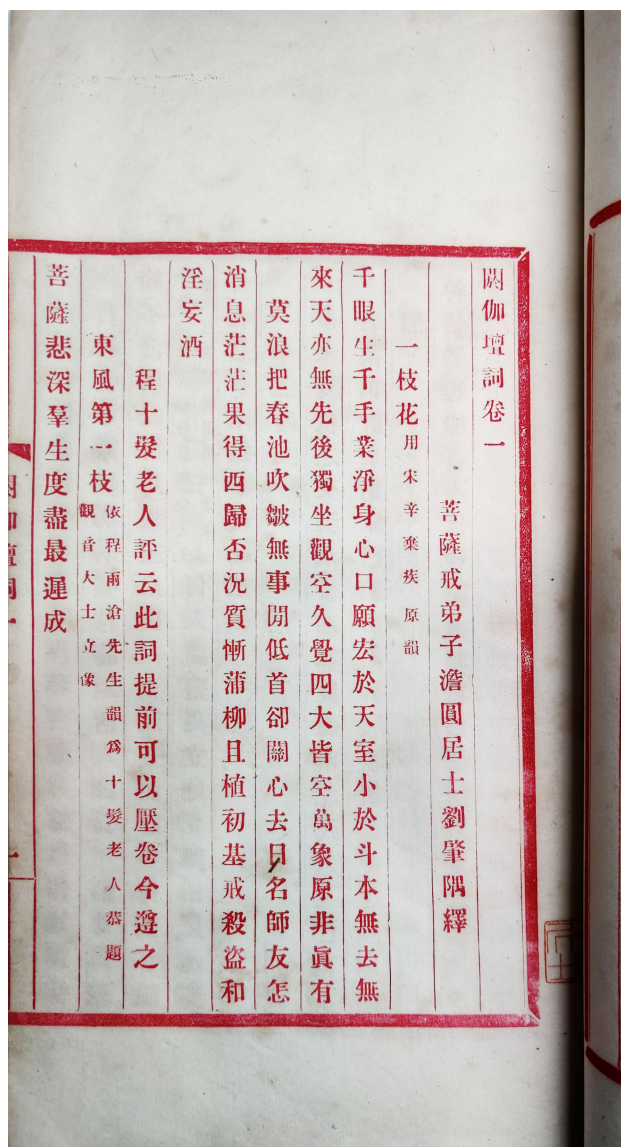 閼伽壇詞卷一
菩薩戒弟子澹圓居士劉肇隅繹
一枝花用宋辛棄疾原韻
千眼生千手業淨身心口願宏於天室小於斗本無去無
來天亦無先後獨坐觀空久覺四大皆空萬象原非眞有
莫浪把春池吹皺無事閒低首卻關心去日名師友怎
消息茫茫果得西歸否況質慚蒲柳且植初基戒殺盜和
淫妄酒
程十髮老人評云此詞提前可以壓卷今遵之
東風第一枝依程雨滄先生韻爲十髮老人恭題
觀音大士立像
菩薩悲深羣生度盡最遲成
閼伽壇詞一